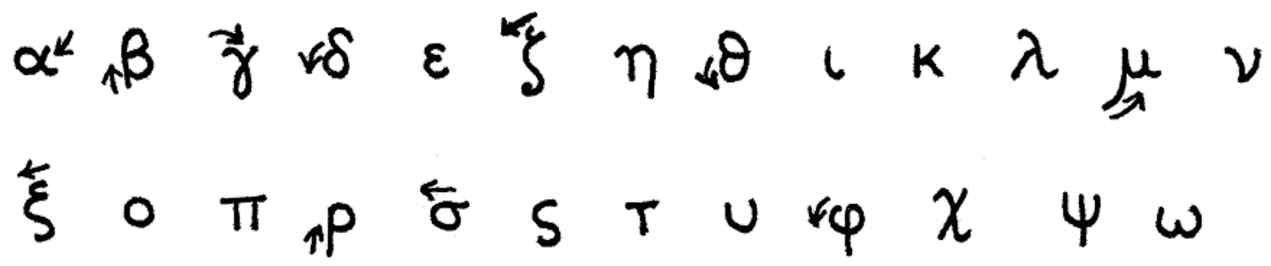 α β γ δ ε ζ η θ ι κ λ μ ν
ξ ο π ρ σ ς τ υ φ χ ψ ω